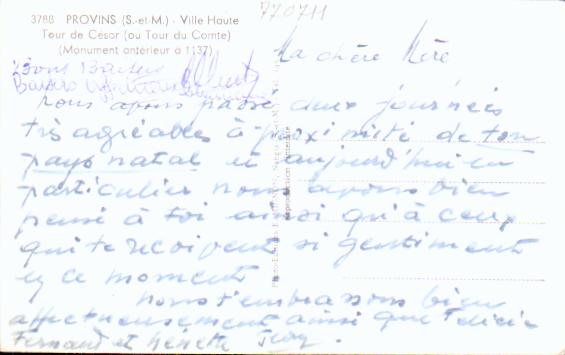 770711
3788 PROVINS (S.-et-M.) - Ville Haute
Tour de César (ou Tour du Comte)
(Monument antérieur à 1137)
Ma chère Mère
Bons Baisers
Baisers
nous avons passé deux journées
très agréables à proximité de ton
pays natal et aujourd'hui en
particulier nous avons bien
pensé à toi ainsi qu'à ceux
qui te reçoivent si gentiment
en ce moment
nous t'embrassons bien
affectueusement ainsi que Félicie
Fernand et
Reproduction interdite